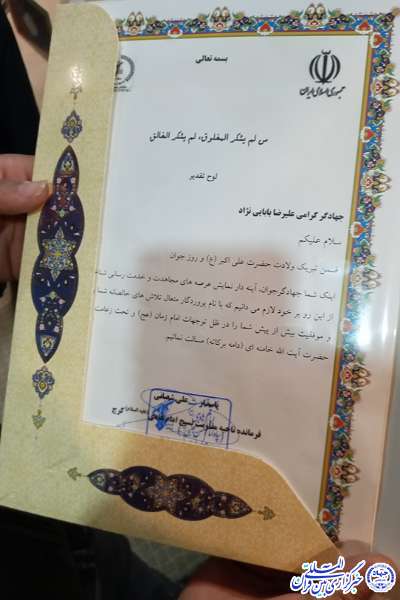 بسمه تعالی
جمهوری اسلامی ایران
من لم یشکر المخلوق، لم یشکر الخالق
لوح تقدیر
جهادگر گرامی علیرضا بابایی نژاد
سلام علیکم
ضمن تبریک ولادت حضرت علی اکبر (ع) و روز جوان
اینک شما جهادگرجوان، آینه دار نمایش عرصه های مجاهدت و خدمت رسانی شده
از این رو بر خود لازم می دانیم که با نام پروردگار متعال تلاش های خالصانه شما
و موفقیت بیش از پیش شما را در ظل توجهات امام زمان (عج) و تحت زعامت
حضرت آیت الله خامنه ای (دامه برکاته) مسالت نمائیم.
پاسدار علی شعبانی
فرمانده ناحیه مقاومت بسیج امام کرج
خبرگزاری بین المللی قرآن